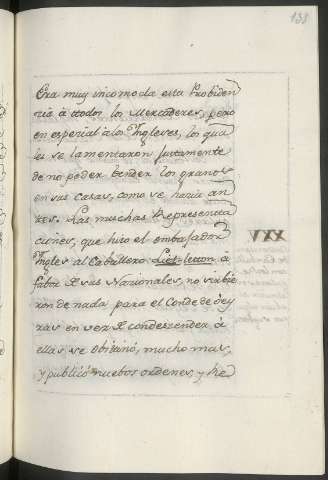 138
Era muy incomoda esta Probiden
cia à ttodos los Mercaderes, pero
en especial à los Ingleses, los qua
les se lamentaron justamente
de no poder bender los granos
en sus casas, como se hacia an
tes. Las muchas Representa
ciones, que hizo el embajador
Ingles al Caballero à
fabor de sus Nacionales, no sirbie
ron de nada para el Conde de oey
ras en vez de condescender à
ellas se obstinó, mucho mas,
y publicó nuebos ordenes, y he
XXV